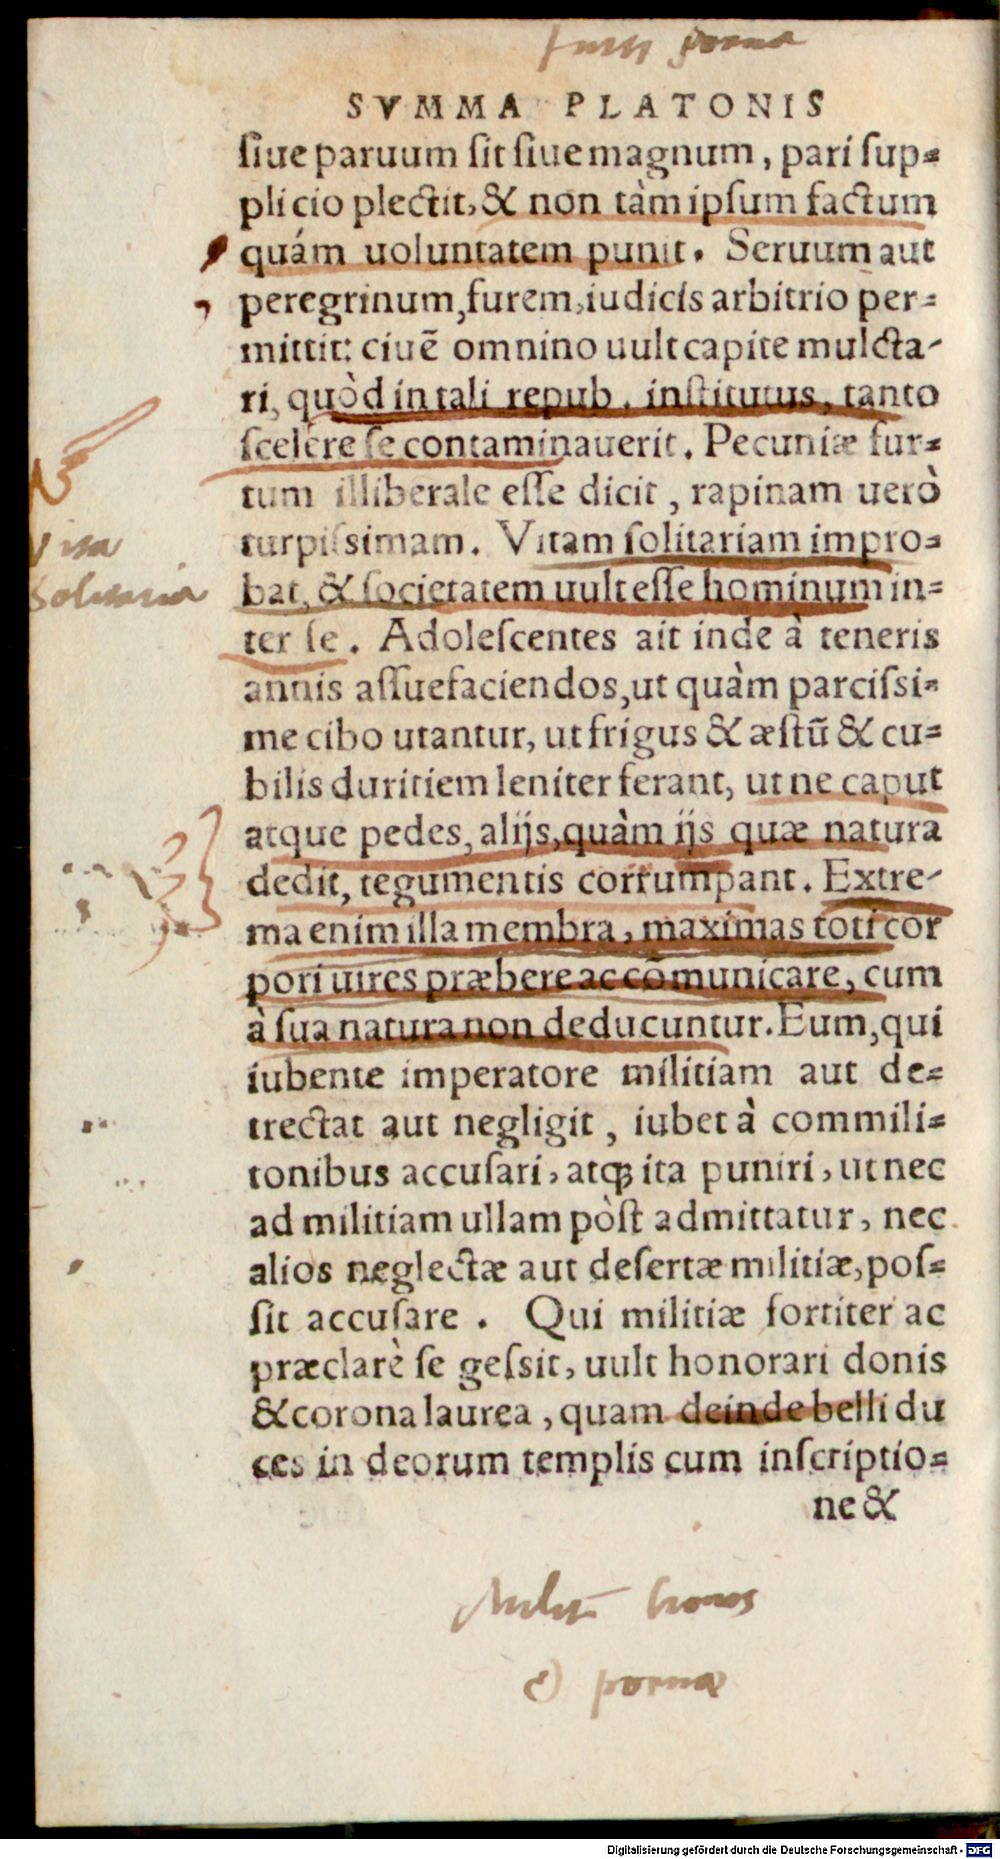 furti poena
SVMMA PLATONIS
siue paruum sit siue magnum, pari sup=
plicio plectit, & non tàm ipsum factum
quám uoluntatem punit. Seruum aut
peregrinum, furem, iudicis arbitrio per=
mittit: ciuē omnino uult capite mulcta-
ri, quòd in tali repub. institutus, tanto
scelere se contaminauerit. Pecuniæ fur=
tum illiberale esse dicit, rapinam uerò
turpissimam. Vitam solitariam impro=
Vita
bat, & societatem uult esse hominum in=
solitaria
ter se. Adolescentes ait inde à teneris
annis assuefaciendos, ut quàm parcissi=
me cibo utantur, ut frigus & æstū & cu=
bilis duritiem leniter ferant, ut ne caput
atque pedes, alijs, quàm ijs quæ natura
dedit, tegumentis corrumpant. Extre-
ma enim illa membra, maximas toti cor
pori uires præbere ac cōmunicare, cum
à sua natura non deducuntur. Eum, qui
iubente imperatore militiam aut de=
trectat aut negligit, iubet à commili=
tonibus accusari, atqꝫ ita puniri, ut nec
ad militiam ullam pòst admittatur, nec
alios neglectæ aut desertæ militiæ, pos=
sit accusare. Qui militiæ fortiter ac
præclarè se gessit, uult honorari donis
& corona laurea, quam deinde belli du
ces in deorum templis cum inscriptio=
ne &
honos
& poenae
Digitalisierung gefördert durch die Deutsche Forschungsgemeinschaft - DFG